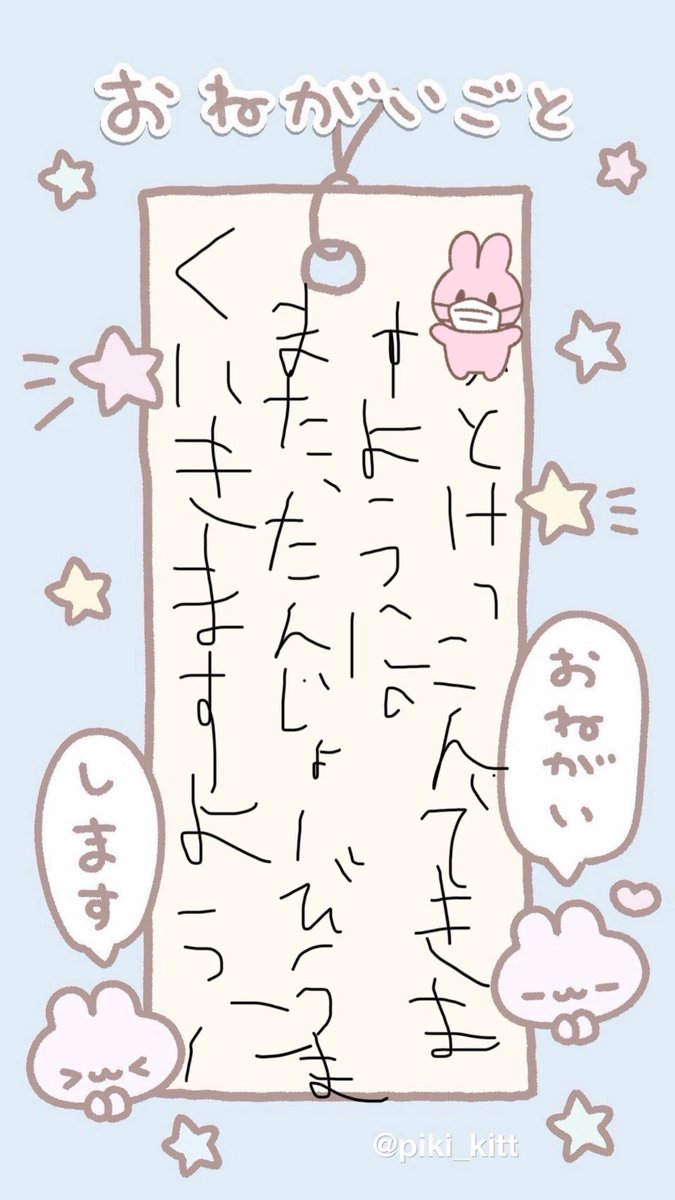 おねがいごと
とけっこんできま
すように。
また、たんじょーびうま
くいきますように
おねがい
します
@piki_kitt